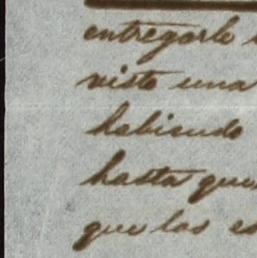 entregarle
visto una
habiendo
hasta que
que los es